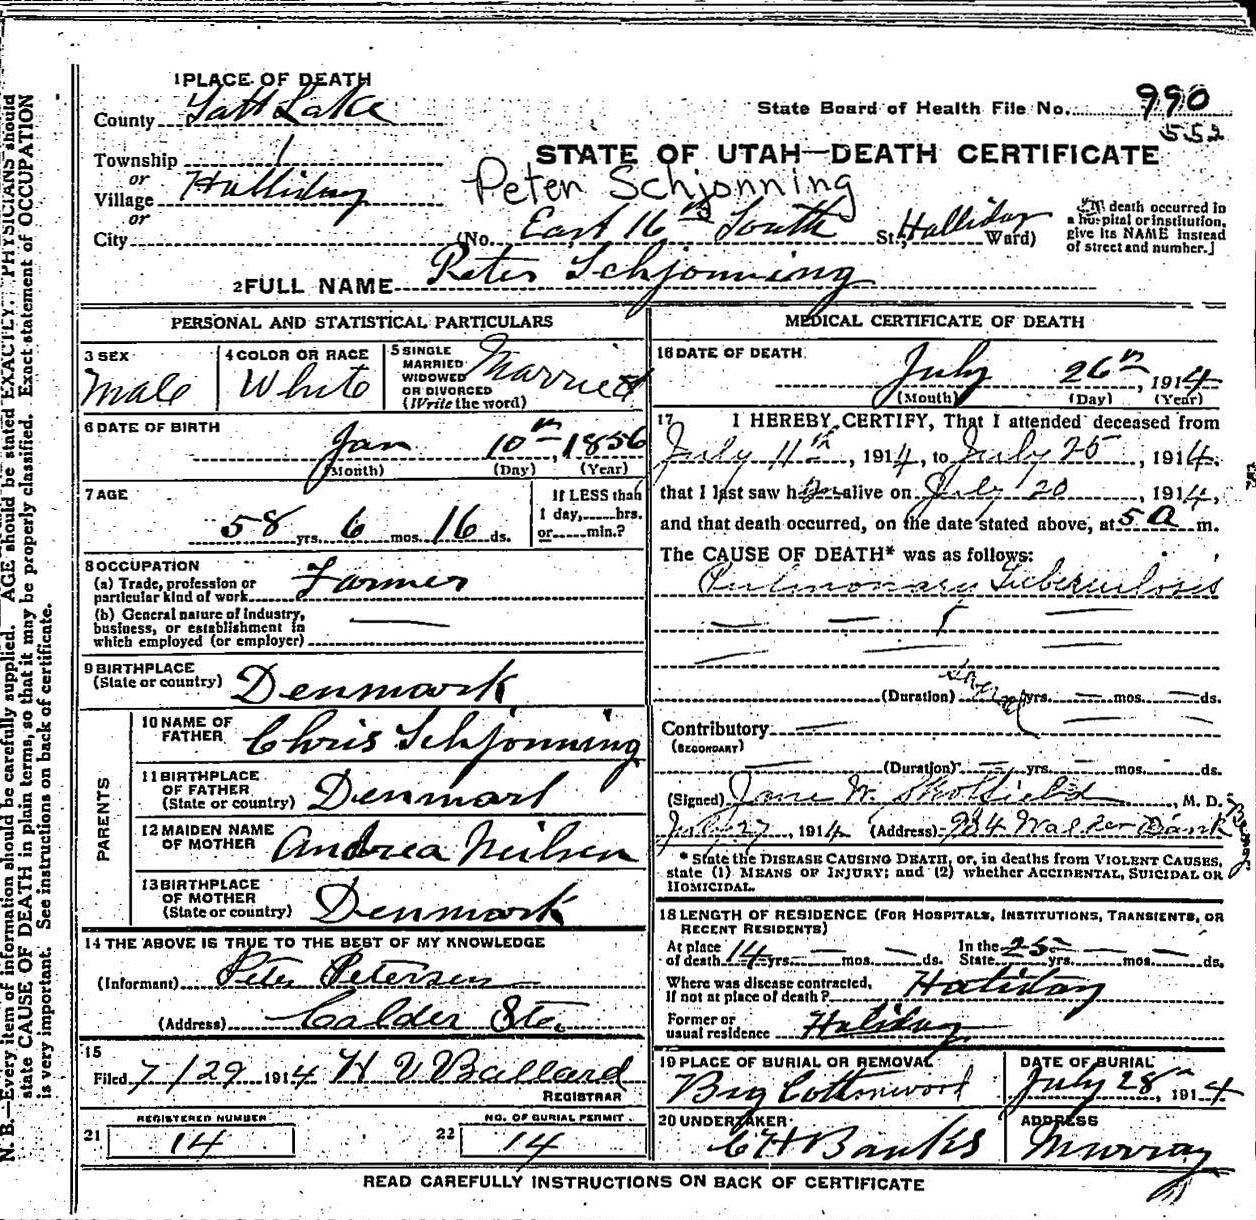 1 PLACE OF DEATH
County Salt Lake
State Board of Health File No. 990
552
Township 1
STATE OF UTAH—DEATH CERTIFICATE
or
Village Halliday
Peter Schjonning
or
City
(No. East 16th South St.; Halliday Ward)
[If death occurred in
a hospital or institution,
give its NAME instead
of street and number.]
2 FULL NAME Peter Schjonning
PERSONAL AND STATISTICAL PARTICULARS
3 SEX Male
4 COLOR OR RACE White
5 SINGLE
MARRIED
WIDOWED
OR DIVORCED
(Write the word) Married
6 DATE OF BIRTH
Jan 10th, 1856
(Month) (Day) (Year)
7 AGE
58 yrs. 6 mos. 16 ds.
If LESS than
1 day, hrs.
or min.?
8 OCCUPATION
(a) Trade, profession or
particular kind of work Farmer
(b) General nature of industry,
business, or establishment in
which employed (or employer) —
9 BIRTHPLACE
(State or country) Denmark
PARENTS
10 NAME OF
FATHER Chris Schjonning
11 BIRTHPLACE
OF FATHER
(State or country) Denmark
12 MAIDEN NAME
OF MOTHER Andrea Neilsen
13 BIRTHPLACE
OF MOTHER
(State or country) Denmark
14 THE ABOVE IS TRUE TO THE BEST OF MY KNOWLEDGE
(Informant) Peter Petersen
(Address) Calder Sta.
15
Filed 7/29 1914 H V Ballard
REGISTRAR
REGISTERED NUMBER
21 14
NO. OF BURIAL PERMIT
22 14
MEDICAL CERTIFICATE OF DEATH
16 DATE OF DEATH
July 26th, 1914
(Month) (Day) (Year)
17 I HEREBY CERTIFY, That I attended deceased from
July 11th, 1914, to July 25, 1914.
that I last saw him alive on July 20, 1914,
and that death occurred, on the date stated above, at 5 a m.
The CAUSE OF DEATH* was as follows:
Pulmonary Tuberculosis
(Duration) Several yrs. — mos. — ds.
Contributory —
(SECONDARY)
(Duration) — yrs. — mos. ds.
(Signed) Jane W. , M. D.
July 27, 1914 (Address) 934 Walker Bank
* State the DISEASE CAUSING DEATH, or, in deaths from VIOLENT CAUSES,
state (1) MEANS OF INJURY; and (2) whether ACCIDENTAL, SUICIDAL OR
HOMICIDAL.
18 LENGTH OF RESIDENCE (FOR HOSPITALS, INSTITUTIONS, TRANSIENTS, OR
RECENT RESIDENTS)
At place
of death 14 yrs. — mos. — ds.
In the
State 25 yrs. — mos. — ds.
Where was disease contracted,
If not at place of death? Haliday
Former or
usual residence Haliday
19 PLACE OF BURIAL OR REMOVAL
Big Cottonwood
DATE OF BURIAL
July 28th, 1914
20 UNDERTAKER
Banks
ADDRESS
Murray
READ CAREFULLY INSTRUCTIONS ON BACK OF CERTIFICATE
N. B.—Every item of information should be carefully supplied. AGE should be stated EXACTLY. PHYSICIANS should
state CAUSE OF DEATH in plain terms, so that it may be properly classified. Exact statement of OCCUPATION
is very important. See instructions on back of certificate.